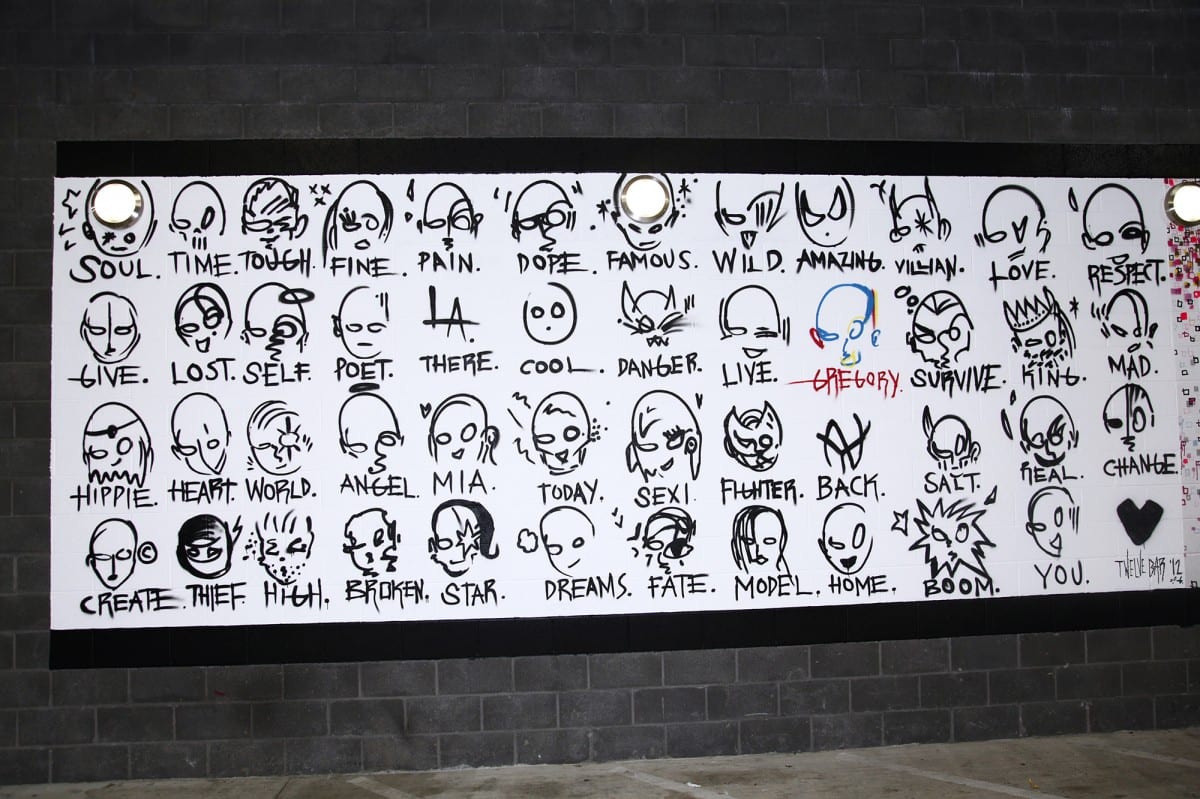 SOUL. TIME. TOUGH. FINE. PAIN. DOPE. FAMOUS. WILD. AMAZING. VILLIAN. LOVE. RESPECT.
GIVE. LOST. SELF. POET. LA THERE. COOL. DANGER. LIVE. GREGORY. SURVIVE. KING. MAD.
HIPPIE. HEART. WORLD. ANGEL. MIA. TODAY. SEXI. FIGHTER. BACK. SALT. REAL. CHANGE.
CREATE. © THIEF. HIGH. BROKEN. STAR. DREAMS. FATE. MODEL. HOME. BOOM. YOU. TWELVE BAR '12